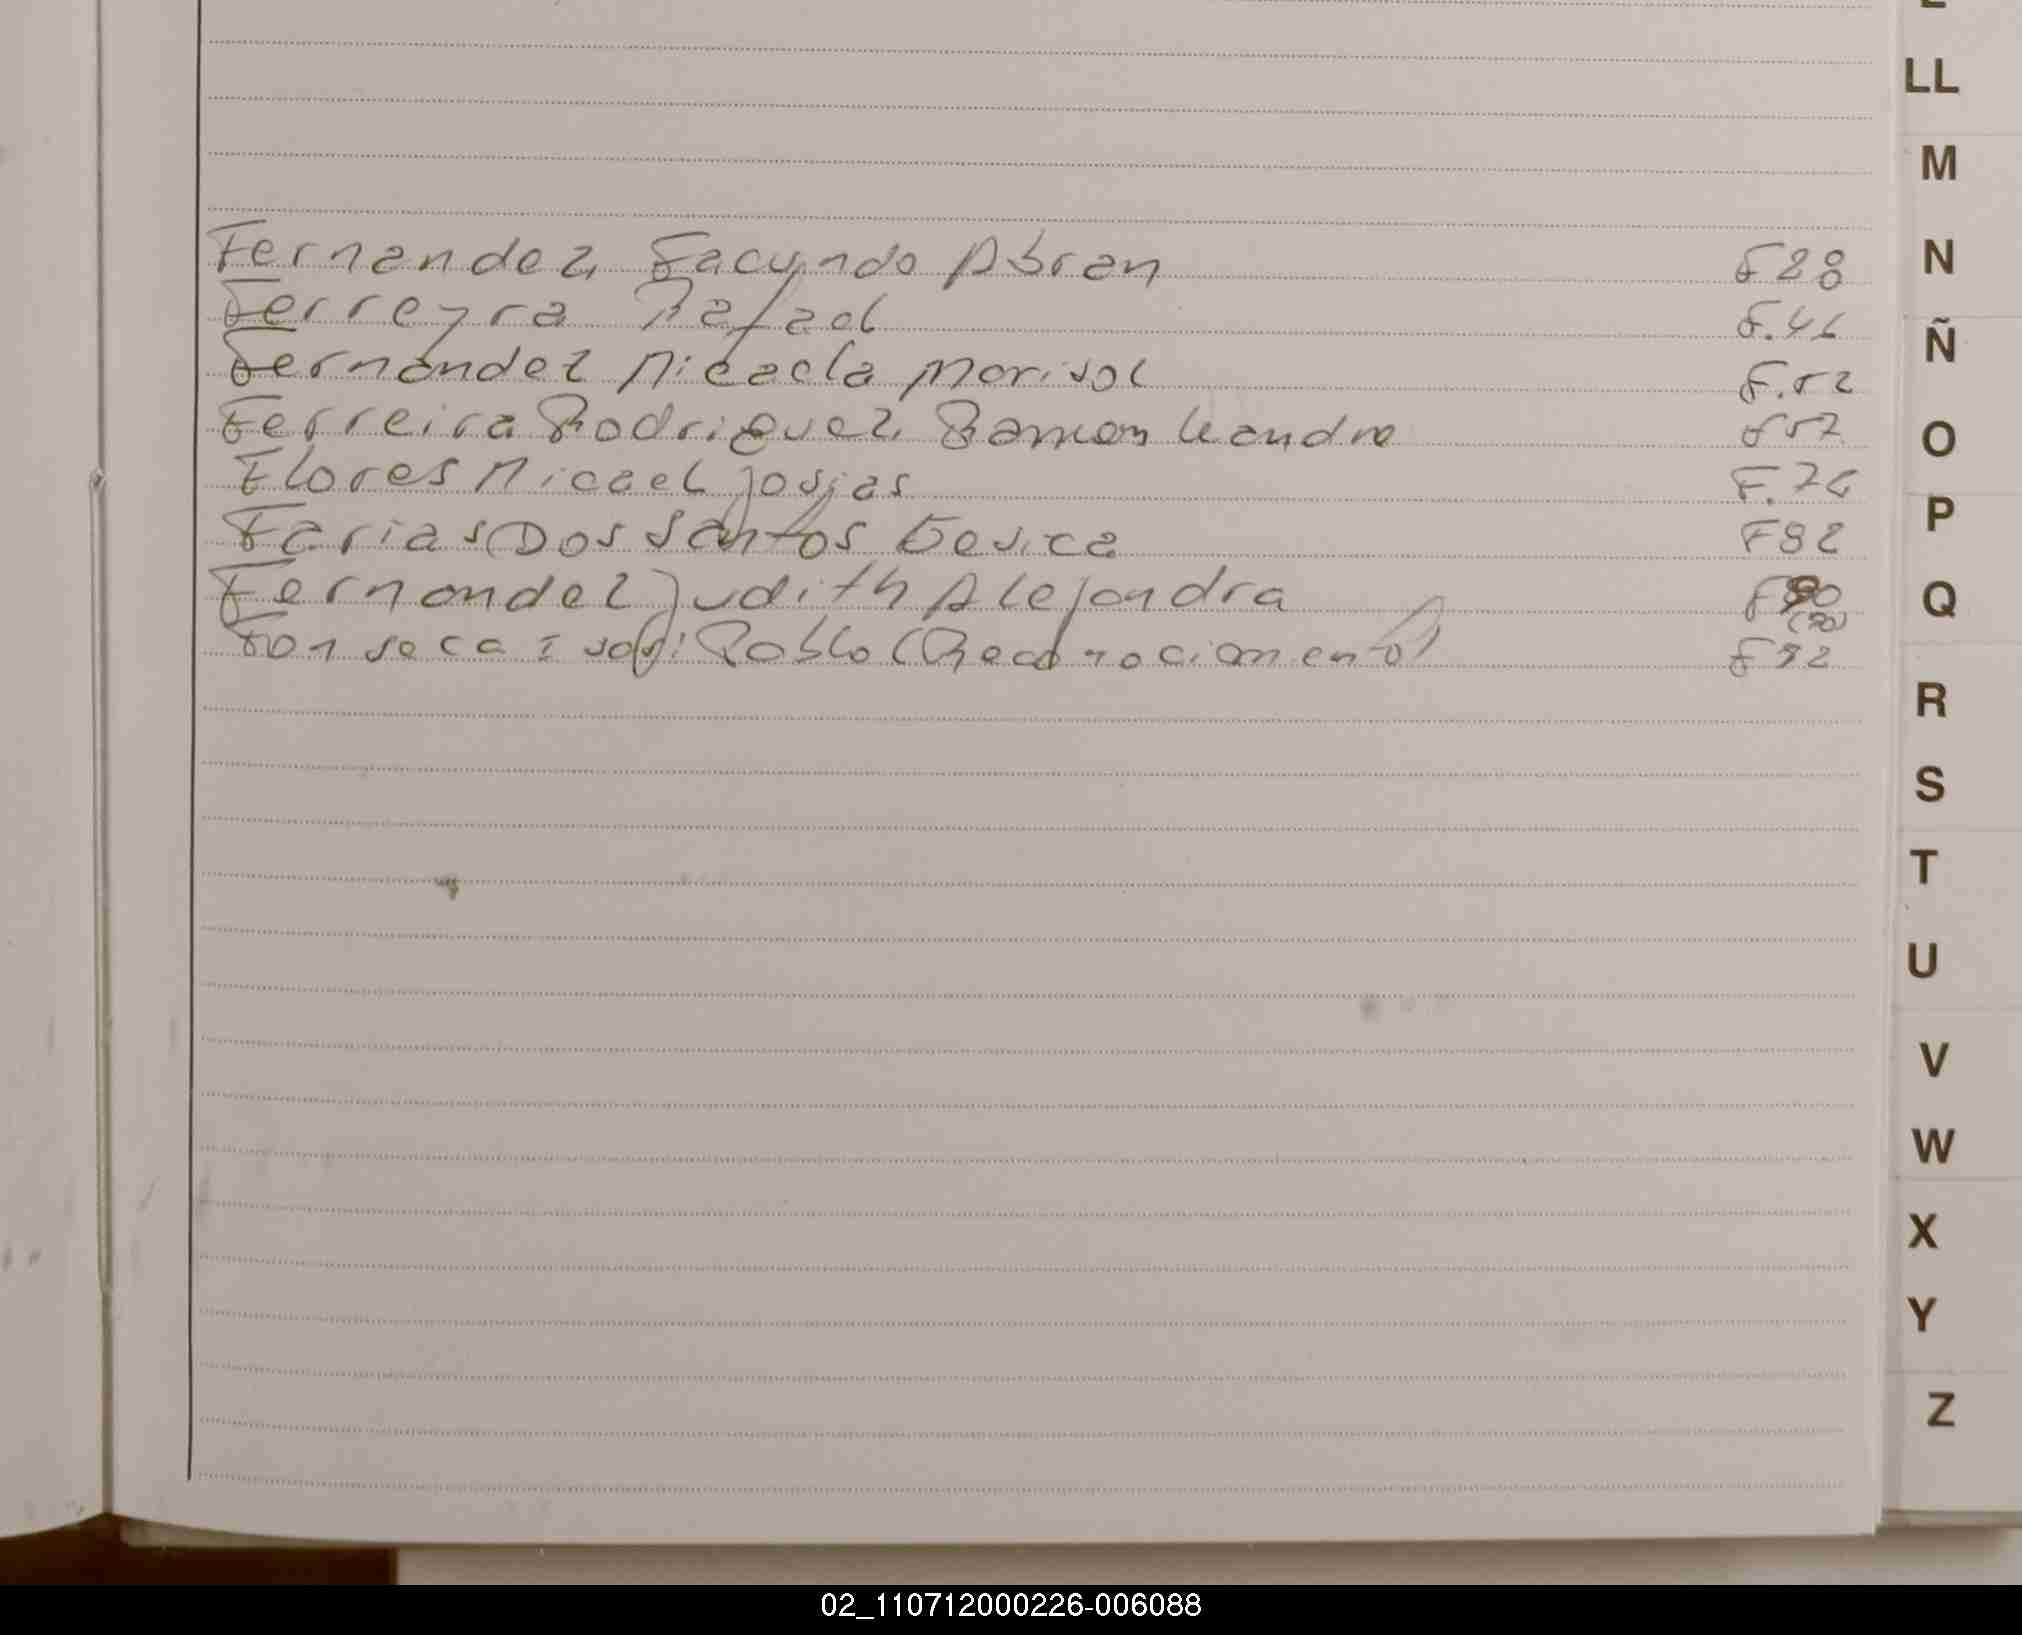 L
LL
M
N
Ñ
O
P
Q
R
S
T
U
V
W
X
Y
Z
Fernandez, Facundo Abran F28
Ferreyra Rafael F.46
Fernandez Micaela Marisol F.52
Ferreira Rodriguez, Ramon Leandro F57
Flores Micael Josias F.76
Farias Dos Santos Gesica F82
Fernandez Judith Alejandra F90
(90)
Fonseca Pablo (Reconocimento) F92
02_110712000226-006088